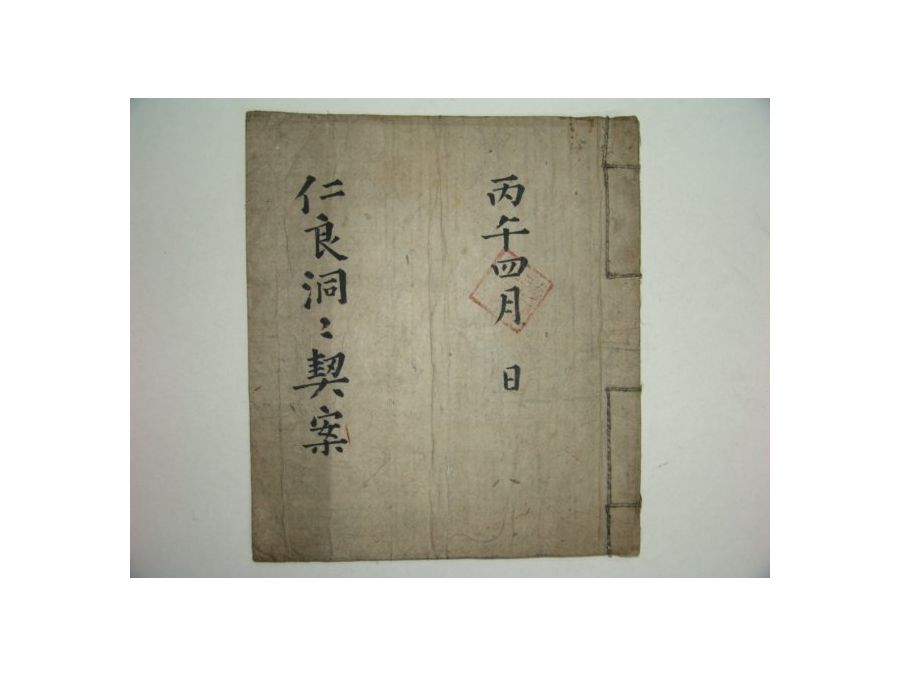 丙午四月 日
仁良洞〻契案